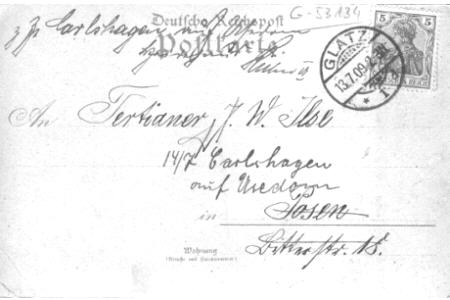 G-53134
Deutsche Reichspost
Postkarte
z. Zt. Carlshagen auf Usedom
5
GLATZ
13.7.09.
* 1 a
An Tertianer J. W. Ilse
14/7 Carlshagen
auf Usedom
in Posen
Bitterstr. 18.
Wohnung
(Straße und Hausnummer)